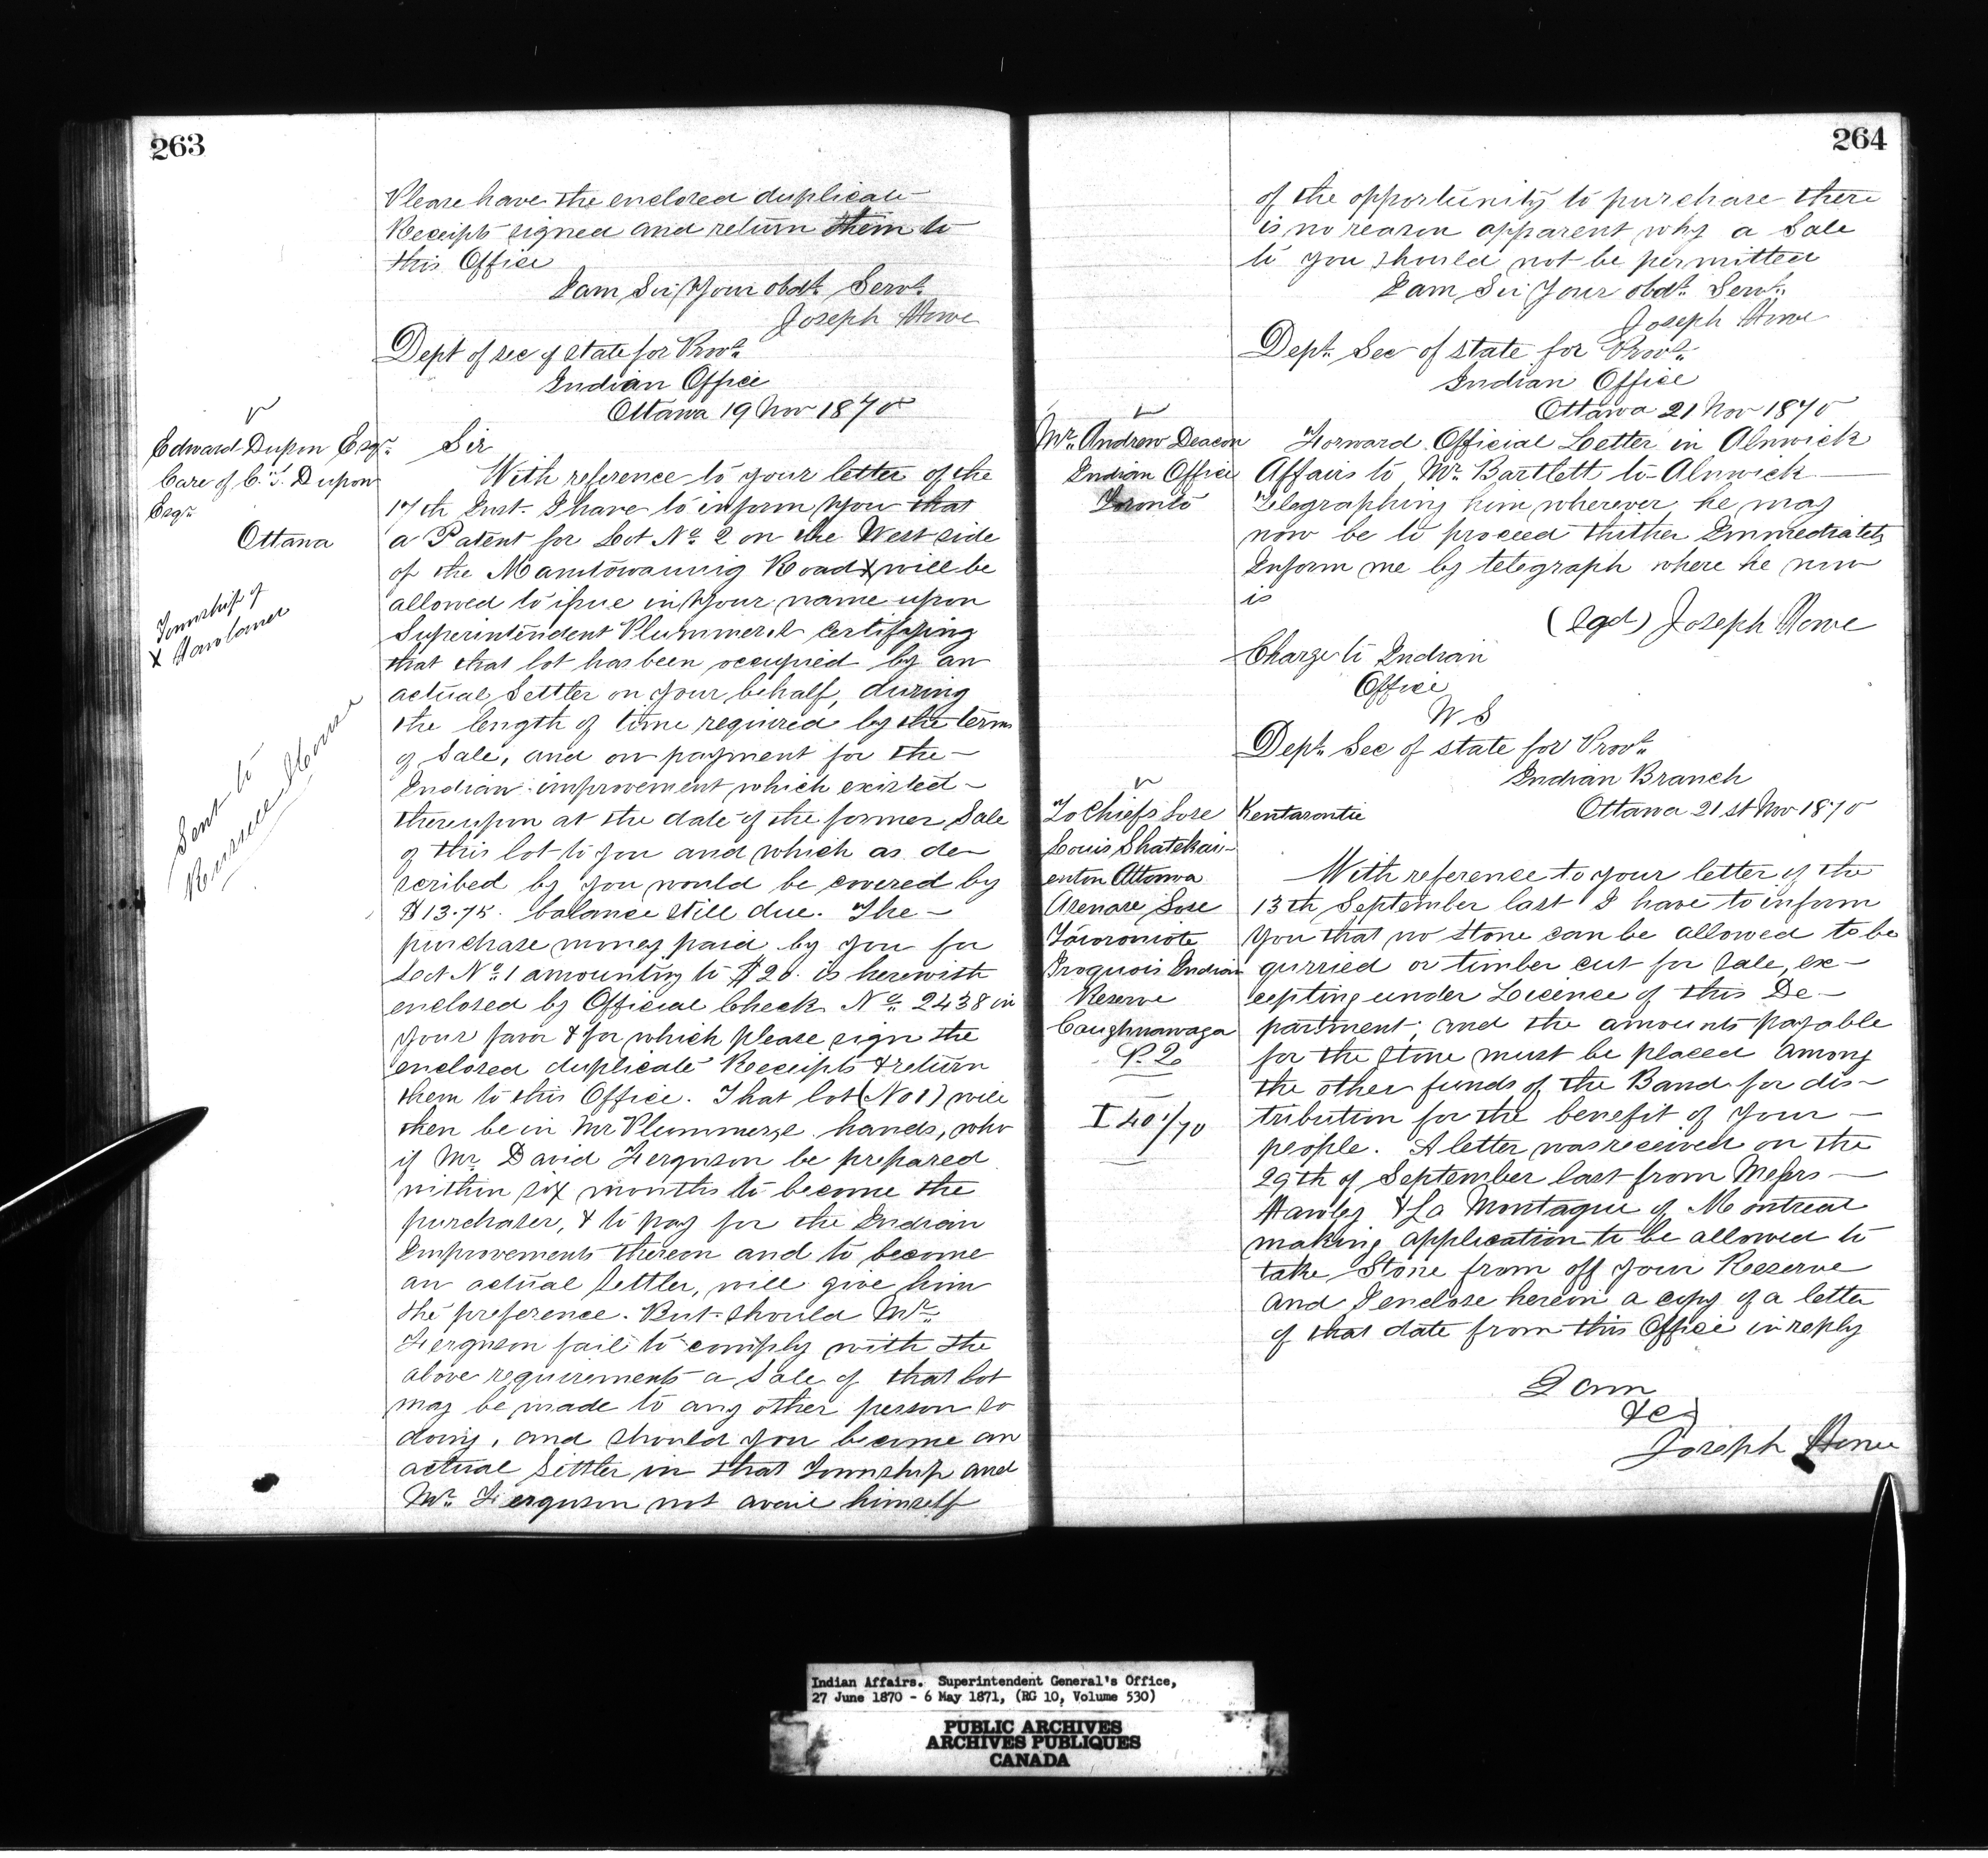 263
Please have the enclosed duplicate
Receipts signed and return them to
this Office
I am Sir Your obdt. Servt.
Joseph Howe
Dept of sec of state for Provs.
Indian Office
Ottawa 19 Nov 1870
Edward Dupon Esqr.
Care of C. T. Dupon
Esqr
Ottawa
Sir
With reference to your letter of the
17th Inst. I have to inform you that
a Patent for Lot No. 2 on the West side
of the Manitowaning Road x will be
allowed to issue in your name upon
Superintendent Plummer's certifying
that that lot has been occupied by an
actual Settler on your behalf, during
the length of time required by the terms
of Sale, and on payment for the
Indian improvement which existed
thereupon at the date of the former Sale
of this lot to you and which as de-
scribed by you would be covered by
$13.75. balance still due. The
purchase money paid by you for
Lot No. 1 amounting to $20. is herewith
enclosed by Official Check No. 2438 in
your favor & for which please sign the
enclosed duplicate Receipts & return
them to this Office. That lot (No 1) will
then be in Mr Plummer's hands, who
if Mr. David Ferguson be prepared
within six months to become the
purchaser, & to pay for the Indian
Improvements thereon and to become
an actual Settler, will give him
the preference. But should Mr.
Ferguson fail to comply with the
above requirements a Sale of that lot
may be made to any other person so
doing, and should you become an
actual Settler in that Township and
Mr. Ferguson not avail himself
Township of
x
Sent to
Russell House
264
of the opportunity to purchase there
is no reason apparent why a Sale
to you should not be permitted
I am Sir Your obdt. Servt.
Joseph Howe
Dept. Sec of state for Provs.
Indian Office
Ottawa 21 Nov 1870
Mr. Andrew Deacon
Indian Office
Toronto
Forward Official Letter in Alnwick
Affairs to Mr. Bartlett to Alnwick
Telegraphing him wherever he may
now be to proceed thither Immediately
Inform me by telegraph where he now
is
(Sgd) Joseph Howe
Charge to Indian
Office
W S
Dept. Sec of state for Provs.
Indian Branch
Ottawa 21st Nov 1870
To Chiefs Sose Kentarontie
Louis Shatekai-
enton Attonwa
Arenare Sose
Taioroniote
Iroquois Indian
Reserve
Caughnawaga
P. Q.
I 401/70
With reference to your letter of the
13th September last I have to inform
you that no Stone can be allowed to be
qurried or timber cut for sale, ex-
cepting under Licence of this De-
partment, and the amounts payable
for the stone must be placed among
the other funds of the Band for dis-
tribution for the benefit of your
people. A letter was received on the
29th of September last from Messrs
Hawley & La Montague of Montreal
making application to be allowed to
take Stone from off your Reserve
and I enclose herein a copy of a letter
of that date from this Office in reply
I am
&c
Joseph Howe
Indian Affairs. Superintendent General's Office,
27 June 1870 - 6 May 1871, (RG 10, Volume 530)
PUBLIC ARCHIVES
ARCHIVES PUBLIQUES
CANADA